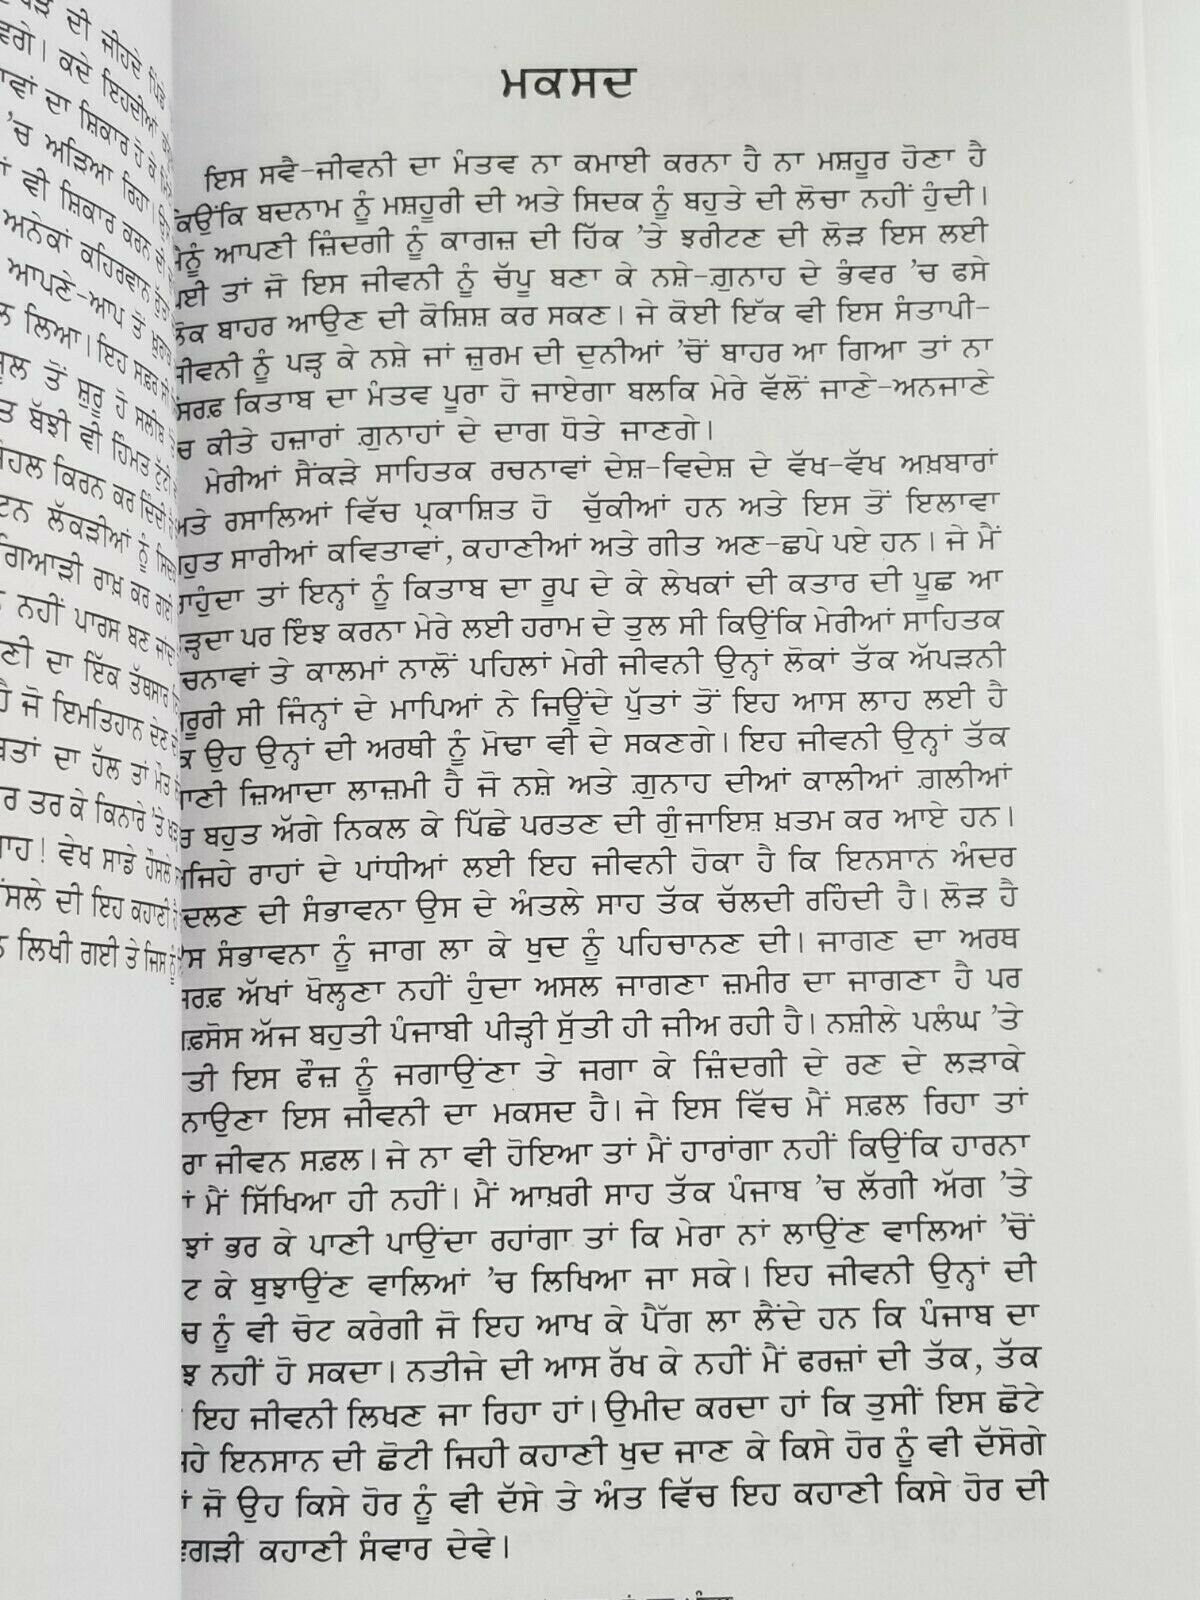 ੜ ਦੀ ਜੀਹਦੇ ਪਿੱਛੇ
ਵਗੇ। ਕਦੇ ਇਹਦੀਆਂ
ਾਵਾਂ ਦਾ ਸ਼ਿਕਾਰ ਹੋ ਕੇ
'ਚ ਅੜਿਆ ਰਿਹਾ।
ਾਂ ਵੀ ਸ਼ਿਕਾਰ ਕਰਨ ਦੀ
ਅਨੇਕਾਂ ਕਹਿਰਵਾਨ
ਆਪਣੇ-ਆਪ ਤੋਂ
ਲ ਲਿਆ। ਇਹ ਸਫ਼ਰ ਸੀ
ੂਲ ਤੋਂ ਸ਼ੁਰੂ ਹੋ ਸਲੀਬ
ਤ ਬੱਝੀ ਵੀ ਹਿੰਮਤ ਟੁੱਟੀ
ਹਲ ਕਿਰਨ ਕਰ ਦਿੰਦੀ ਹੈ
ਟਨ ਲੱਕੜੀਆਂ ਨੂੰ
ਗਿਆੜੀ ਰਾਖ਼ ਕਰ ਗਈ
ਨਹੀਂ ਪਾਰਸ ਬਣ ਜਾਂਦਾ
ਣੀ ਦਾ ਇੱਕ ਤੱਥਸਾਰ
ਹੈ ਜੋ ਇਮਤਿਹਾਨ ਦੇਣ
ਬਤਾਂ ਦਾ ਹੱਲ ਤਾਂ ਮੌਤ
ਰ ਤਰ ਕੇ ਕਿਨਾਰੇ 'ਤੇ
ਾਹ! ਵੇਖ ਸਾਡੇ ਹੌਸਲੇ
ਸਲੇ ਦੀ ਇਹ ਕਹਾਣੀ ਹੈ
ਲਿਖੀ ਗਈ ਤੇ ਜਿਸ ਨੂੰ
ਮਕਸਦ
ਇਸ ਸਵੈ-ਜੀਵਨੀ ਦਾ ਮੰਤਵ ਨਾ ਕਮਾਈ ਕਰਨਾ ਹੈ ਨਾ ਮਸ਼ਹੂਰ ਹੋਣਾ ਹੈ
ਕਿਉਂਕਿ ਬਦਨਾਮ ਨੂੰ ਮਸ਼ਹੂਰੀ ਦੀ ਅਤੇ ਸਿਦਕ ਨੂੰ ਬਹੁਤੇ ਦੀ ਲੋਚਾ ਨਹੀਂ ਹੁੰਦੀ।
ਮੈਨੂੰ ਆਪਣੀ ਜ਼ਿੰਦਗੀ ਨੂੰ ਕਾਗਜ਼ ਦੀ ਹਿੱਕ 'ਤੇ ਝਰੀਟਣ ਦੀ ਲੋੜ ਇਸ ਲਈ
ਪਈ ਤਾਂ ਜੋ ਇਸ ਜੀਵਨੀ ਨੂੰ ਚੱਪੂ ਬਣਾ ਕੇ ਨਸ਼ੇ-ਗੁਨਾਹ ਦੇ ਭੰਵਰ 'ਚ ਫਸੇ
ਲੋਕ ਬਾਹਰ ਆਉਣ ਦੀ ਕੋਸ਼ਿਸ਼ ਕਰ ਸਕਣ। ਜੇ ਕੋਈ ਇੱਕ ਵੀ ਇਸ ਸੰਤਾਪੀ-
ਜੀਵਨੀ ਨੂੰ ਪੜ੍ਹ ਕੇ ਨਸ਼ੇ ਜਾਂ ਜ਼ੁਰਮ ਦੀ ਦੁਨੀਆਂ 'ਚੋਂ ਬਾਹਰ ਆ ਗਿਆ ਤਾਂ ਨਾ
ਸਿਰਫ਼ ਕਿਤਾਬ ਦਾ ਮੰਤਵ ਪੂਰਾ ਹੋ ਜਾਏਗਾ ਬਲਕਿ ਮੇਰੇ ਵੱਲੋਂ ਜਾਣੇ-ਅਨਜਾਣੇ
ਚ ਕੀਤੇ ਹਜ਼ਾਰਾਂ ਗ਼ੁਨਾਹਾਂ ਦੇ ਦਾਗ ਧੋਤੇ ਜਾਣਗੇ।
ਮੇਰੀਆਂ ਸੈਂਕੜੇ ਸਾਹਿਤਕ ਰਚਨਾਵਾਂ ਦੇਸ਼-ਵਿਦੇਸ਼ ਦੇ ਵੱਖ-ਵੱਖ ਅਖ਼ਬਾਰਾਂ
ਅਤੇ ਰਸਾਲਿਆਂ ਵਿੱਚ ਪ੍ਰਕਾਸ਼ਿਤ ਹੋ ਚੁੱਕੀਆਂ ਹਨ ਅਤੇ ਇਸ ਤੋਂ ਇਲਾਵਾ
ਬਹੁਤ ਸਾਰੀਆਂ ਕਵਿਤਾਵਾਂ, ਕਹਾਣੀਆਂ ਅਤੇ ਗੀਤ ਅਣ-ਛਪੇ ਪਏ ਹਨ। ਜੇ ਮੈਂ
ਚਾਹੁੰਦਾ ਤਾਂ ਇਨ੍ਹਾਂ ਨੂੰ ਕਿਤਾਬ ਦਾ ਰੂਪ ਦੇ ਕੇ ਲੇਖਕਾਂ ਦੀ ਕਤਾਰ ਦੀ ਪੂਛ ਆ
ੜ੍ਹਦਾ ਪਰ ਇੰਝ ਕਰਨਾ ਮੇਰੇ ਲਈ ਹਰਾਮ ਦੇ ਤੁਲ ਸੀ ਕਿਉਂਕਿ ਮੇਰੀਆਂ ਸਾਹਿਤਕ
ਚਨਾਵਾਂ ਤੇ ਕਾਲਮਾਂ ਨਾਲੋਂ ਪਹਿਲਾਂ ਮੇਰੀ ਜੀਵਨੀ ਉਨ੍ਹਾਂ ਲੋਕਾਂ ਤੱਕ ਅੱਪੜਨੀ
ਜ਼ਰੂਰੀ ਸੀ ਜਿੰਨ੍ਹਾਂ ਦੇ ਮਾਪਿਆਂ ਨੇ ਜਿਊਂਦੇ ਪੁੱਤਾਂ ਤੋਂ ਇਹ ਆਸ ਲਾਹ ਲਈ ਹੈ
ਕਿ ਉਹ ਉਨ੍ਹਾਂ ਦੀ ਅਰਥੀ ਨੂੰ ਮੋਢਾ ਵੀ ਦੇ ਸਕਣਗੇ। ਇਹ ਜੀਵਨੀ ਉਨ੍ਹਾਂ ਤੱਕ
ਜਾਣੀ ਜ਼ਿਆਦਾ ਲਾਜ਼ਮੀ ਹੈ ਜੋ ਨਸ਼ੇ ਅਤੇ ਗ਼ੁਨਾਹ ਦੀਆਂ ਕਾਲੀਆਂ ਗ਼ਲੀਆਂ
ਚ ਬਹੁਤ ਅੱਗੇ ਨਿਕਲ ਕੇ ਪਿੱਛੇ ਪਰਤਣ ਦੀ ਗੁੰਜਾਇਸ਼ ਖ਼ਤਮ ਕਰ ਆਏ ਹਨ।
ਅਜਿਹੇ ਰਾਹਾਂ ਦੇ ਪਾਂਧੀਆਂ ਲਈ ਇਹ ਜੀਵਨੀ ਹੋਕਾ ਹੈ ਕਿ ਇਨਸਾਨ ਅੰਦਰ
ਦਲਣ ਦੀ ਸੰਭਾਵਨਾ ਉਸ ਦੇ ਅੰਤਲੇ ਸਾਹ ਤੱਕ ਚੱਲਦੀ ਰਹਿੰਦੀ ਹੈ। ਲੋੜ ਹੈ
ਇਸ ਸੰਭਾਵਨਾ ਨੂੰ ਜਾਗ ਲਾ ਕੇ ਖੁਦ ਨੂੰ ਪਹਿਚਾਨਣ ਦੀ। ਜਾਗਣ ਦਾ ਅਰਥ
ਸਿਰਫ਼ ਅੱਖਾਂ ਖੋਲ੍ਹਣਾ ਨਹੀਂ ਹੁੰਦਾ ਅਸਲ ਜਾਗਣਾ ਜ਼ਮੀਰ ਦਾ ਜਾਗਣਾ ਹੈ ਪਰ
ਅਫ਼ਸੋਸ ਅੱਜ ਬਹੁਤੀ ਪੰਜਾਬੀ ਪੀੜ੍ਹੀ ਸੁੱਤੀ ਹੀ ਜੀਅ ਰਹੀ ਹੈ। ਨਸ਼ੀਲੇ ਪਲੰਘ 'ਤੇ
ਤੀ ਇਸ ਫੌਜ਼ ਨੂੰ ਜਗਾਉਂਣਾ ਤੇ ਜਗਾ ਕੇ ਜ਼ਿੰਦਗੀ ਦੇ ਰਣ ਦੇ ਲੜਾਕੇ
ਨਾਉਣਾ ਇਸ ਜੀਵਨੀ ਦਾ ਮਕਸਦ ਹੈ। ਜੇ ਇਸ ਵਿੱਚ ਮੈਂ ਸਫ਼ਲ ਰਿਹਾ ਤਾਂ
ਰਾ ਜੀਵਨ ਸਫ਼ਲ। ਜੇ ਨਾ ਵੀ ਹੋਇਆ ਤਾਂ ਮੈਂ ਹਾਰਾਂਗਾ ਨਹੀਂ ਕਿਉਂਕਿ ਹਾਰਨਾ
ਾਂ ਮੈਂ ਸਿੱਖਿਆ ਹੀ ਨਹੀਂ। ਮੈਂ ਆਖ਼ਰੀ ਸਾਹ ਤੱਕ ਪੰਜਾਬ 'ਚ ਲੱਗੀ ਅੱਗ 'ਤੇ
ਝਾਂ ਭਰ ਕੇ ਪਾਣੀ ਪਾਉਂਦਾ ਰਹਾਂਗਾ ਤਾਂ ਕਿ ਮੇਰਾ ਨਾਂ ਲਾਉਂਣ ਵਾਲਿਆਂ 'ਚੋਂ
ਟ ਕੇ ਬੁਝਾਉਂਣ ਵਾਲਿਆਂ 'ਚ ਲਿਖਿਆ ਜਾ ਸਕੇ। ਇਹ ਜੀਵਨੀ ਉਨ੍ਹਾਂ ਦੀ
ਚ ਨੂੰ ਵੀ ਚੋਟ ਕਰੇਗੀ ਜੋ ਇਹ ਆਖ ਕੇ ਪੈੱਗ ਲਾ ਲੈਂਦੇ ਹਨ ਕਿ ਪੰਜਾਬ ਦਾ
ਝ ਨਹੀਂ ਹੋ ਸਕਦਾ। ਨਤੀਜੇ ਦੀ ਆਸ ਰੱਖ ਕੇ ਨਹੀਂ ਮੈਂ ਫਰਜ਼ਾਂ ਦੀ ਤੱਕ, ਤੱਕ
ਇਹ ਜੀਵਨੀ ਲਿਖਣ ਜਾ ਰਿਹਾ ਹਾਂ। ਉਮੀਦ ਕਰਦਾ ਹਾਂ ਕਿ ਤੁਸੀਂ ਇਸ ਛੋਟੇ
ਜਹੇ ਇਨਸਾਨ ਦੀ ਛੋਟੀ ਜਿਹੀ ਕਹਾਣੀ ਖੁਦ ਜਾਣ ਕੇ ਕਿਸੇ ਹੋਰ ਨੂੰ ਵੀ ਦੱਸੋਗੇ
ਾਂ ਜੋ ਉਹ ਕਿਸੇ ਹੋਰ ਨੂੰ ਵੀ ਦੱਸੇ ਤੇ ਅੰਤ ਵਿੱਚ ਇਹ ਕਹਾਣੀ ਕਿਸੇ ਹੋਰ ਦੀ
ਵਿਗੜੀ ਕਹਾਣੀ ਸੰਵਾਰ ਦੇਵੇ।